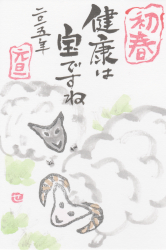 初春
健康は
宝ですね
二〇一五年
元旦